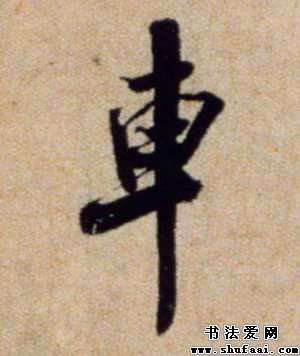 車
书法爱网
www.shufaai.com